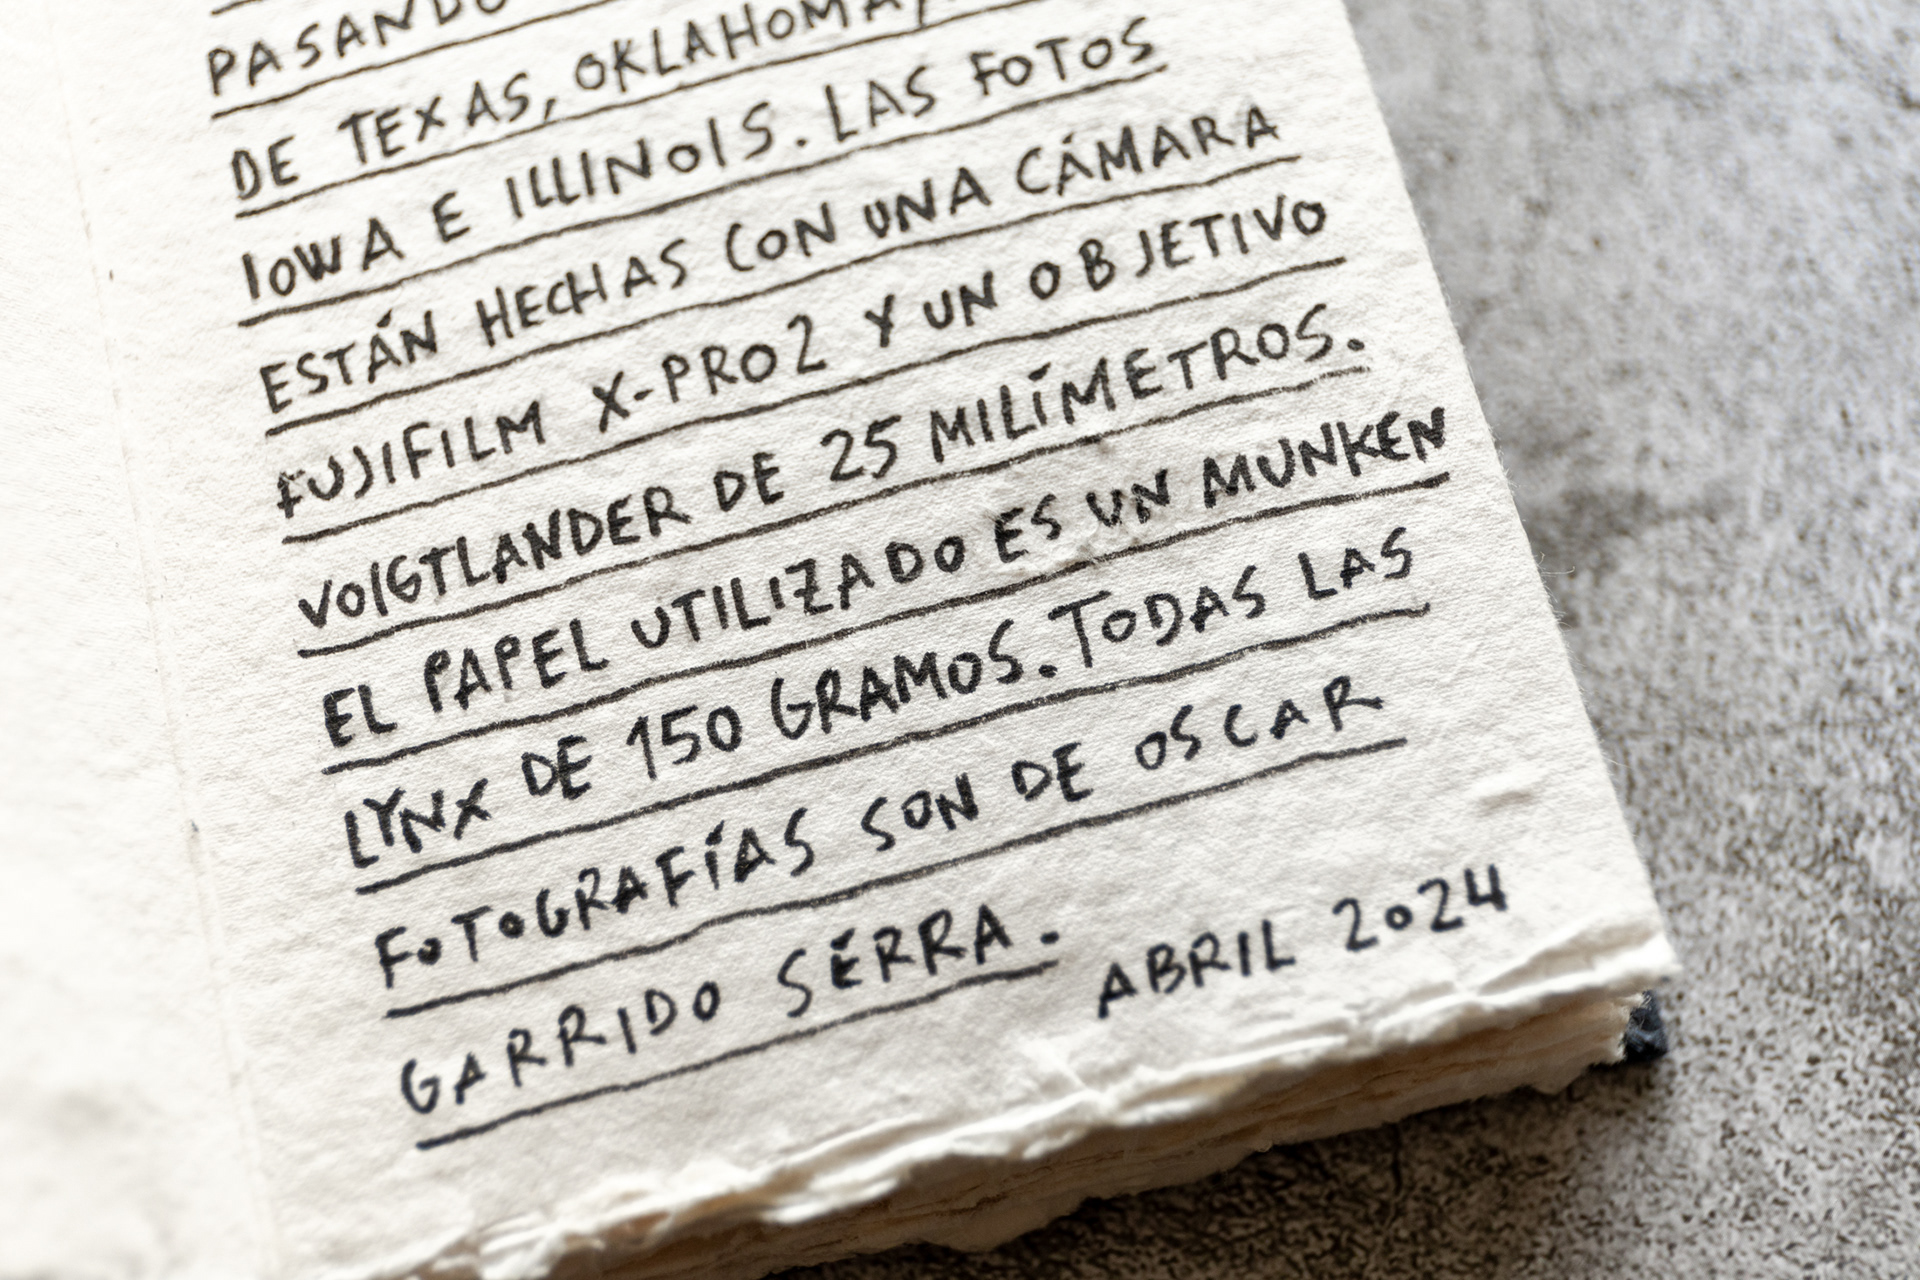 PASANDO
DE TEXAS, OKLAHOMA,
IOWA E ILLINOIS. LAS FOTOS
ESTÁN HECHAS CON UNA CÁMARA
FUJIFILM X-PRO2 Y UN OBJETIVO
VOIGTLANDER DE 25 MILÍMETROS.
EL PAPEL UTILIZADO ES UN MUNKEN
LYNX DE 150 GRAMOS. TODAS LAS
FOTOGRAFÍAS SON DE OSCAR
GARRIDO SERRA.
ABRIL 2024